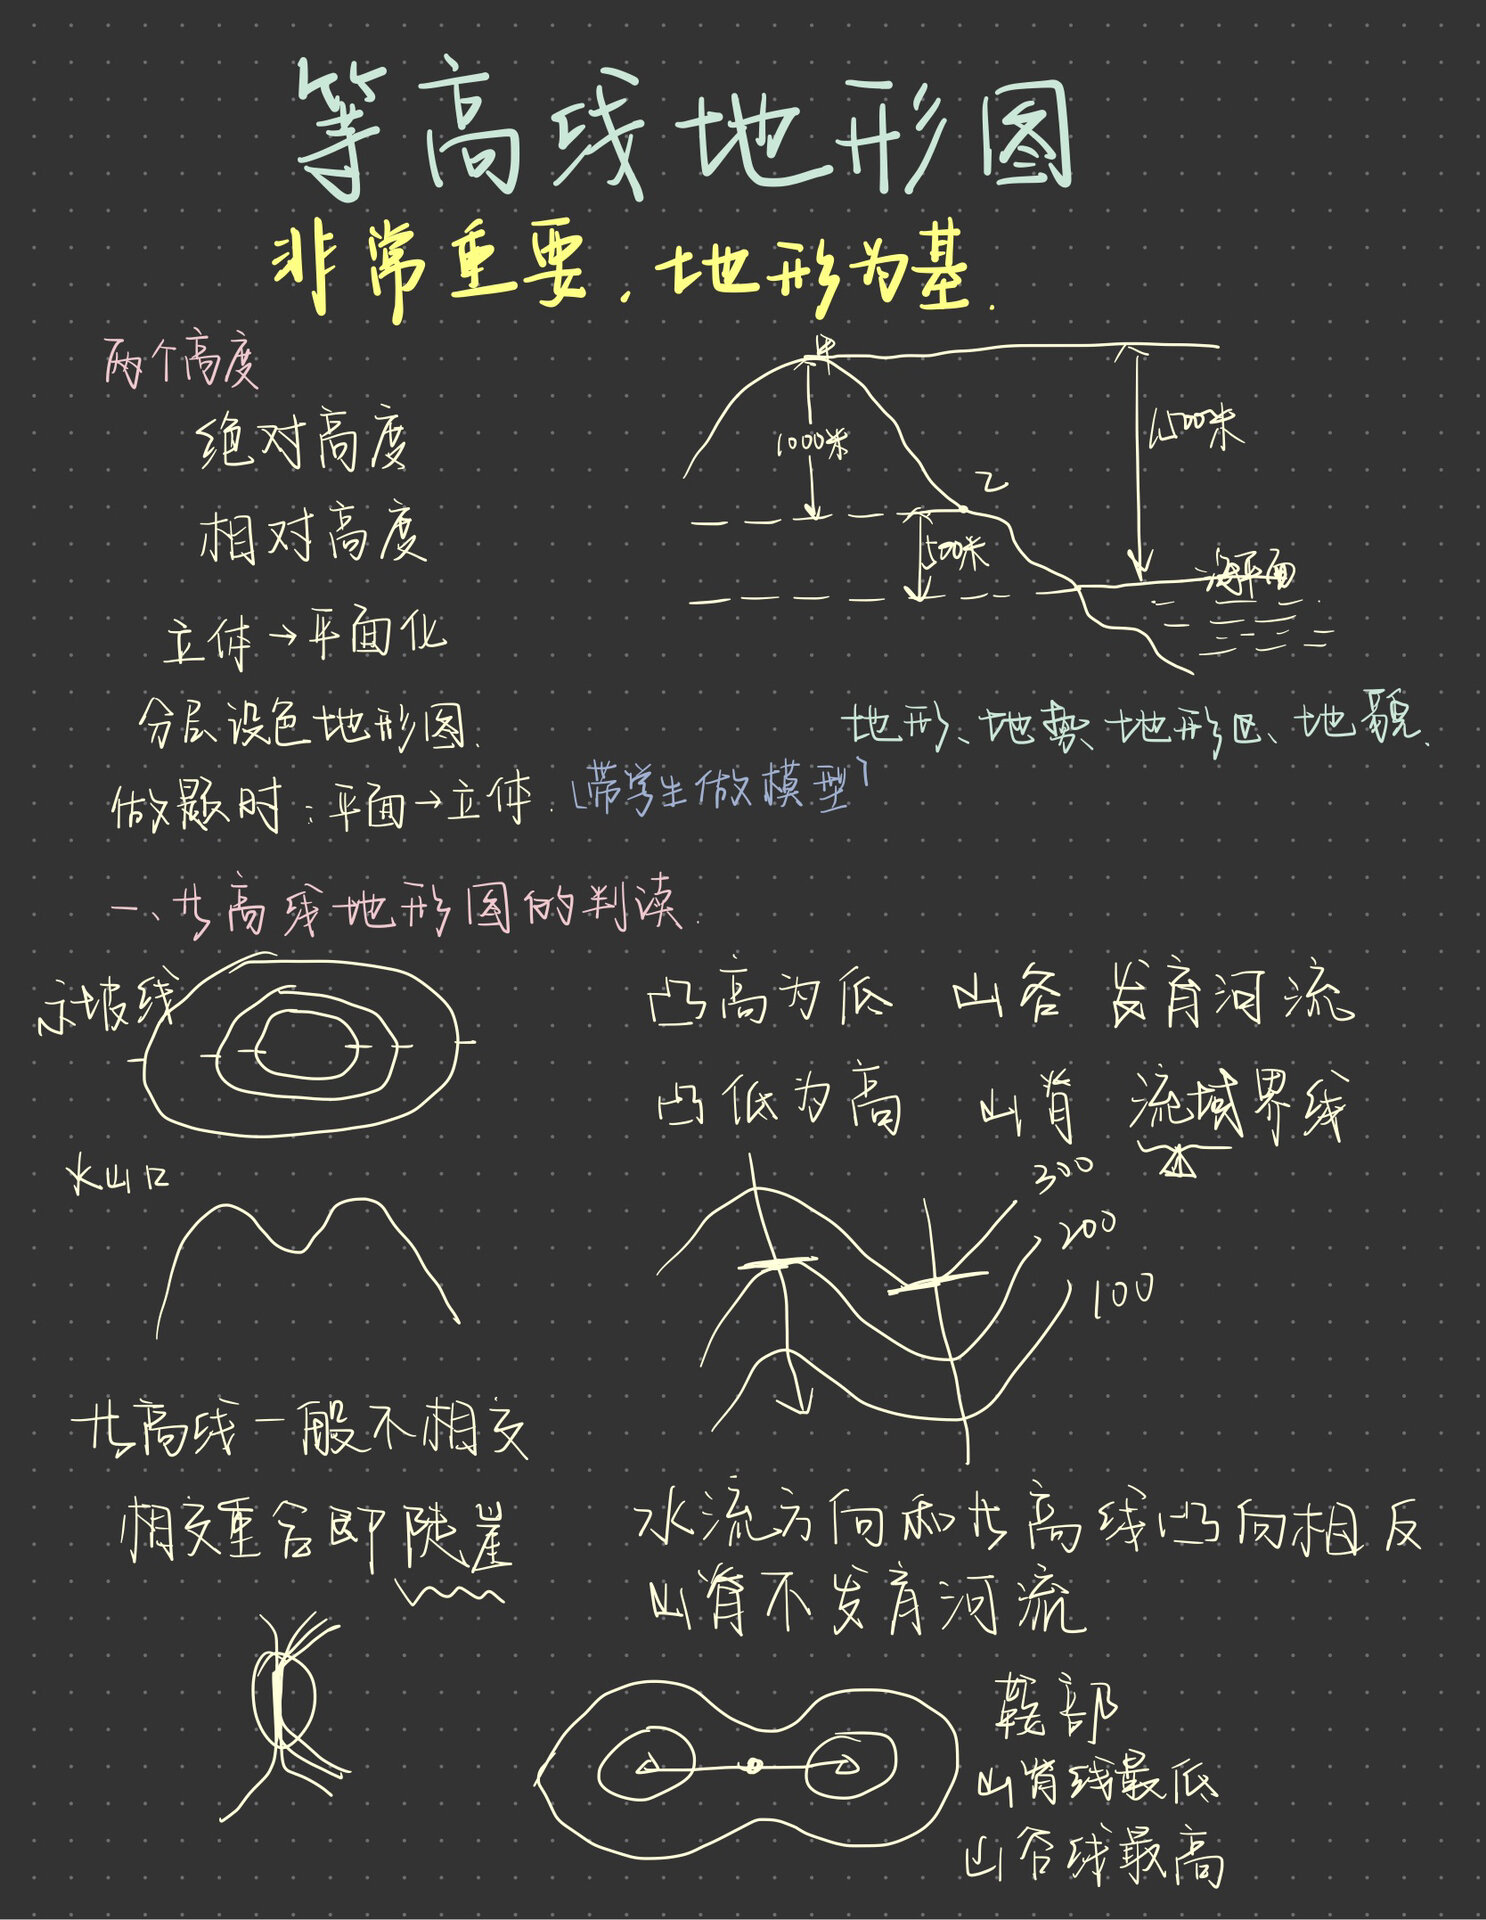 等高线地形图
非常重要,地形为基.
两个高度
绝对高度
相对高度
立体→平面化
分层设色地形图.
做题时:平面→立体.「带学生做模型」
甲
1000米
1500米
乙
500米
海平面
地形、地势、地形区、地貌.
一、廿高线地形图的判读.
示坡线
火山口
凸高为低 山谷 发育河流
凸低为高 山脊 流域界线
300
200
100
廿高线一般不相交
相交重合即陡崖
水流方向和廿高线凸向相反
山脊不发育河流
鞍部
山脊线最低
山谷线最高